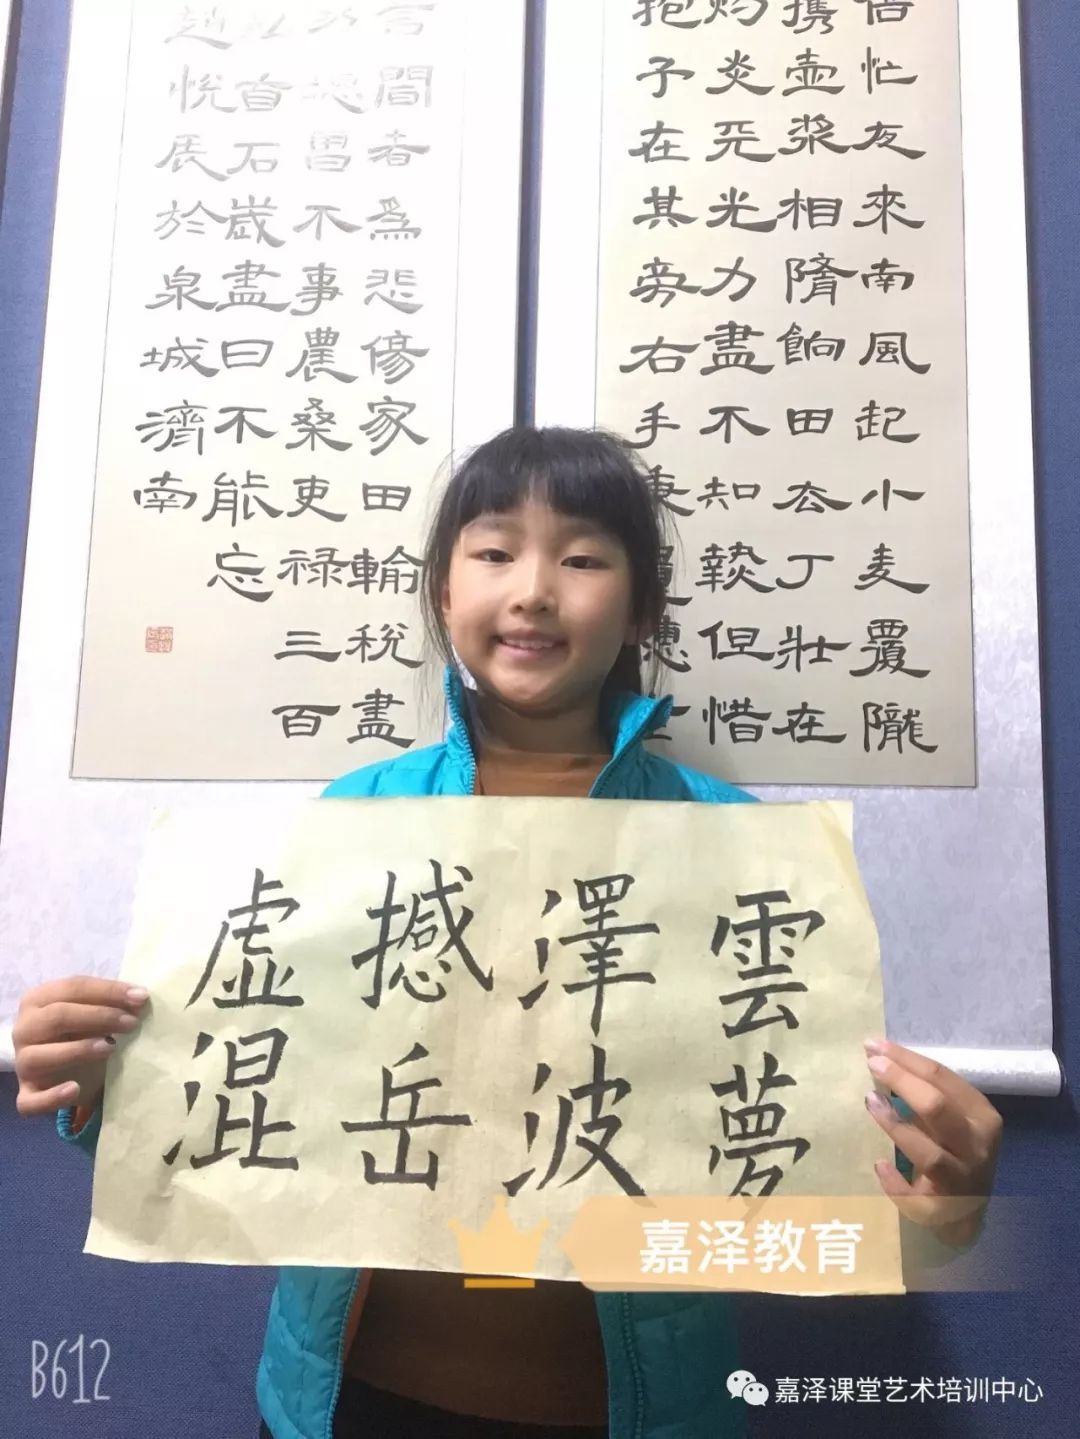 倍忙夜來南風起小麥覆隴
携壺漿相隨餉田去丁壯在
灼炎天光力盡不知熱但惜
抱子在其旁右手秉遺穗
言聞者為悲傷家田輸稅盡
德曾不事農桑吏祿三百
私有石歲盡日不能忘
趙悅辰於泉城濟南
雲夢
澤波
撼岳
虛混
嘉泽教育
B612
嘉泽课堂艺术培训中心